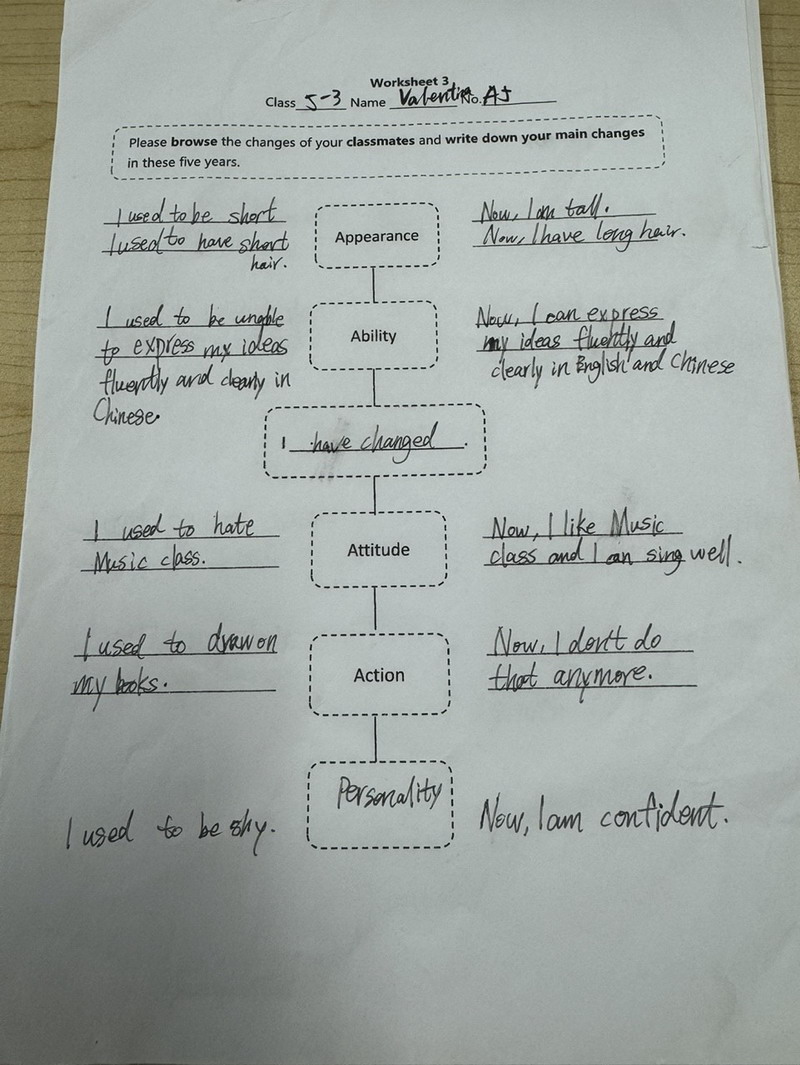 Worksheet 3
Class 5-3 Name Valentina No. A5
Please browse the changes of your classmates and write down your main changes
in these five years.
I used to be short
I used to have short
hair.
Appearance
Now, I am tall.
Now, I have long hair.
I used to be unable
to express my ideas
fluently and clearly in
Chinese.
Ability
Now, I can express
my ideas fluently and
clearly in English and Chinese
I have changed.
I used to hate
Music class.
Attitude
Now, I like Music
class and I can sing well.
I used to draw on
my books.
Action
Now, I don't do
that anymore.
Personality
I used to be shy.
Now, I am confident.